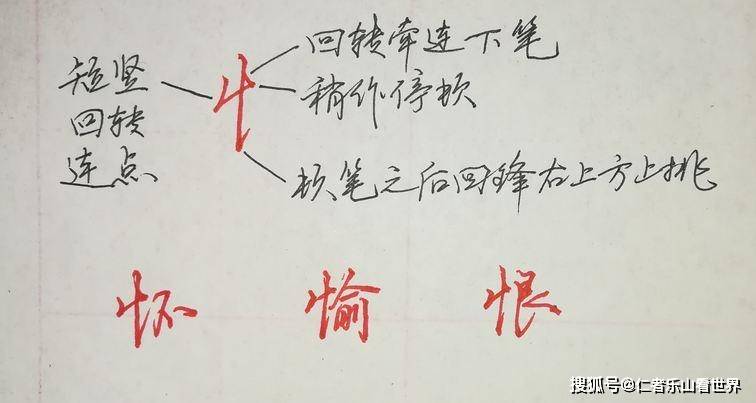 回转牵连下笔
短竖
稍作停顿
回转
连点
顿笔之后回锋右上方上挑
忄
怀 愉 恨
搜狐号@仁者乐山看世界